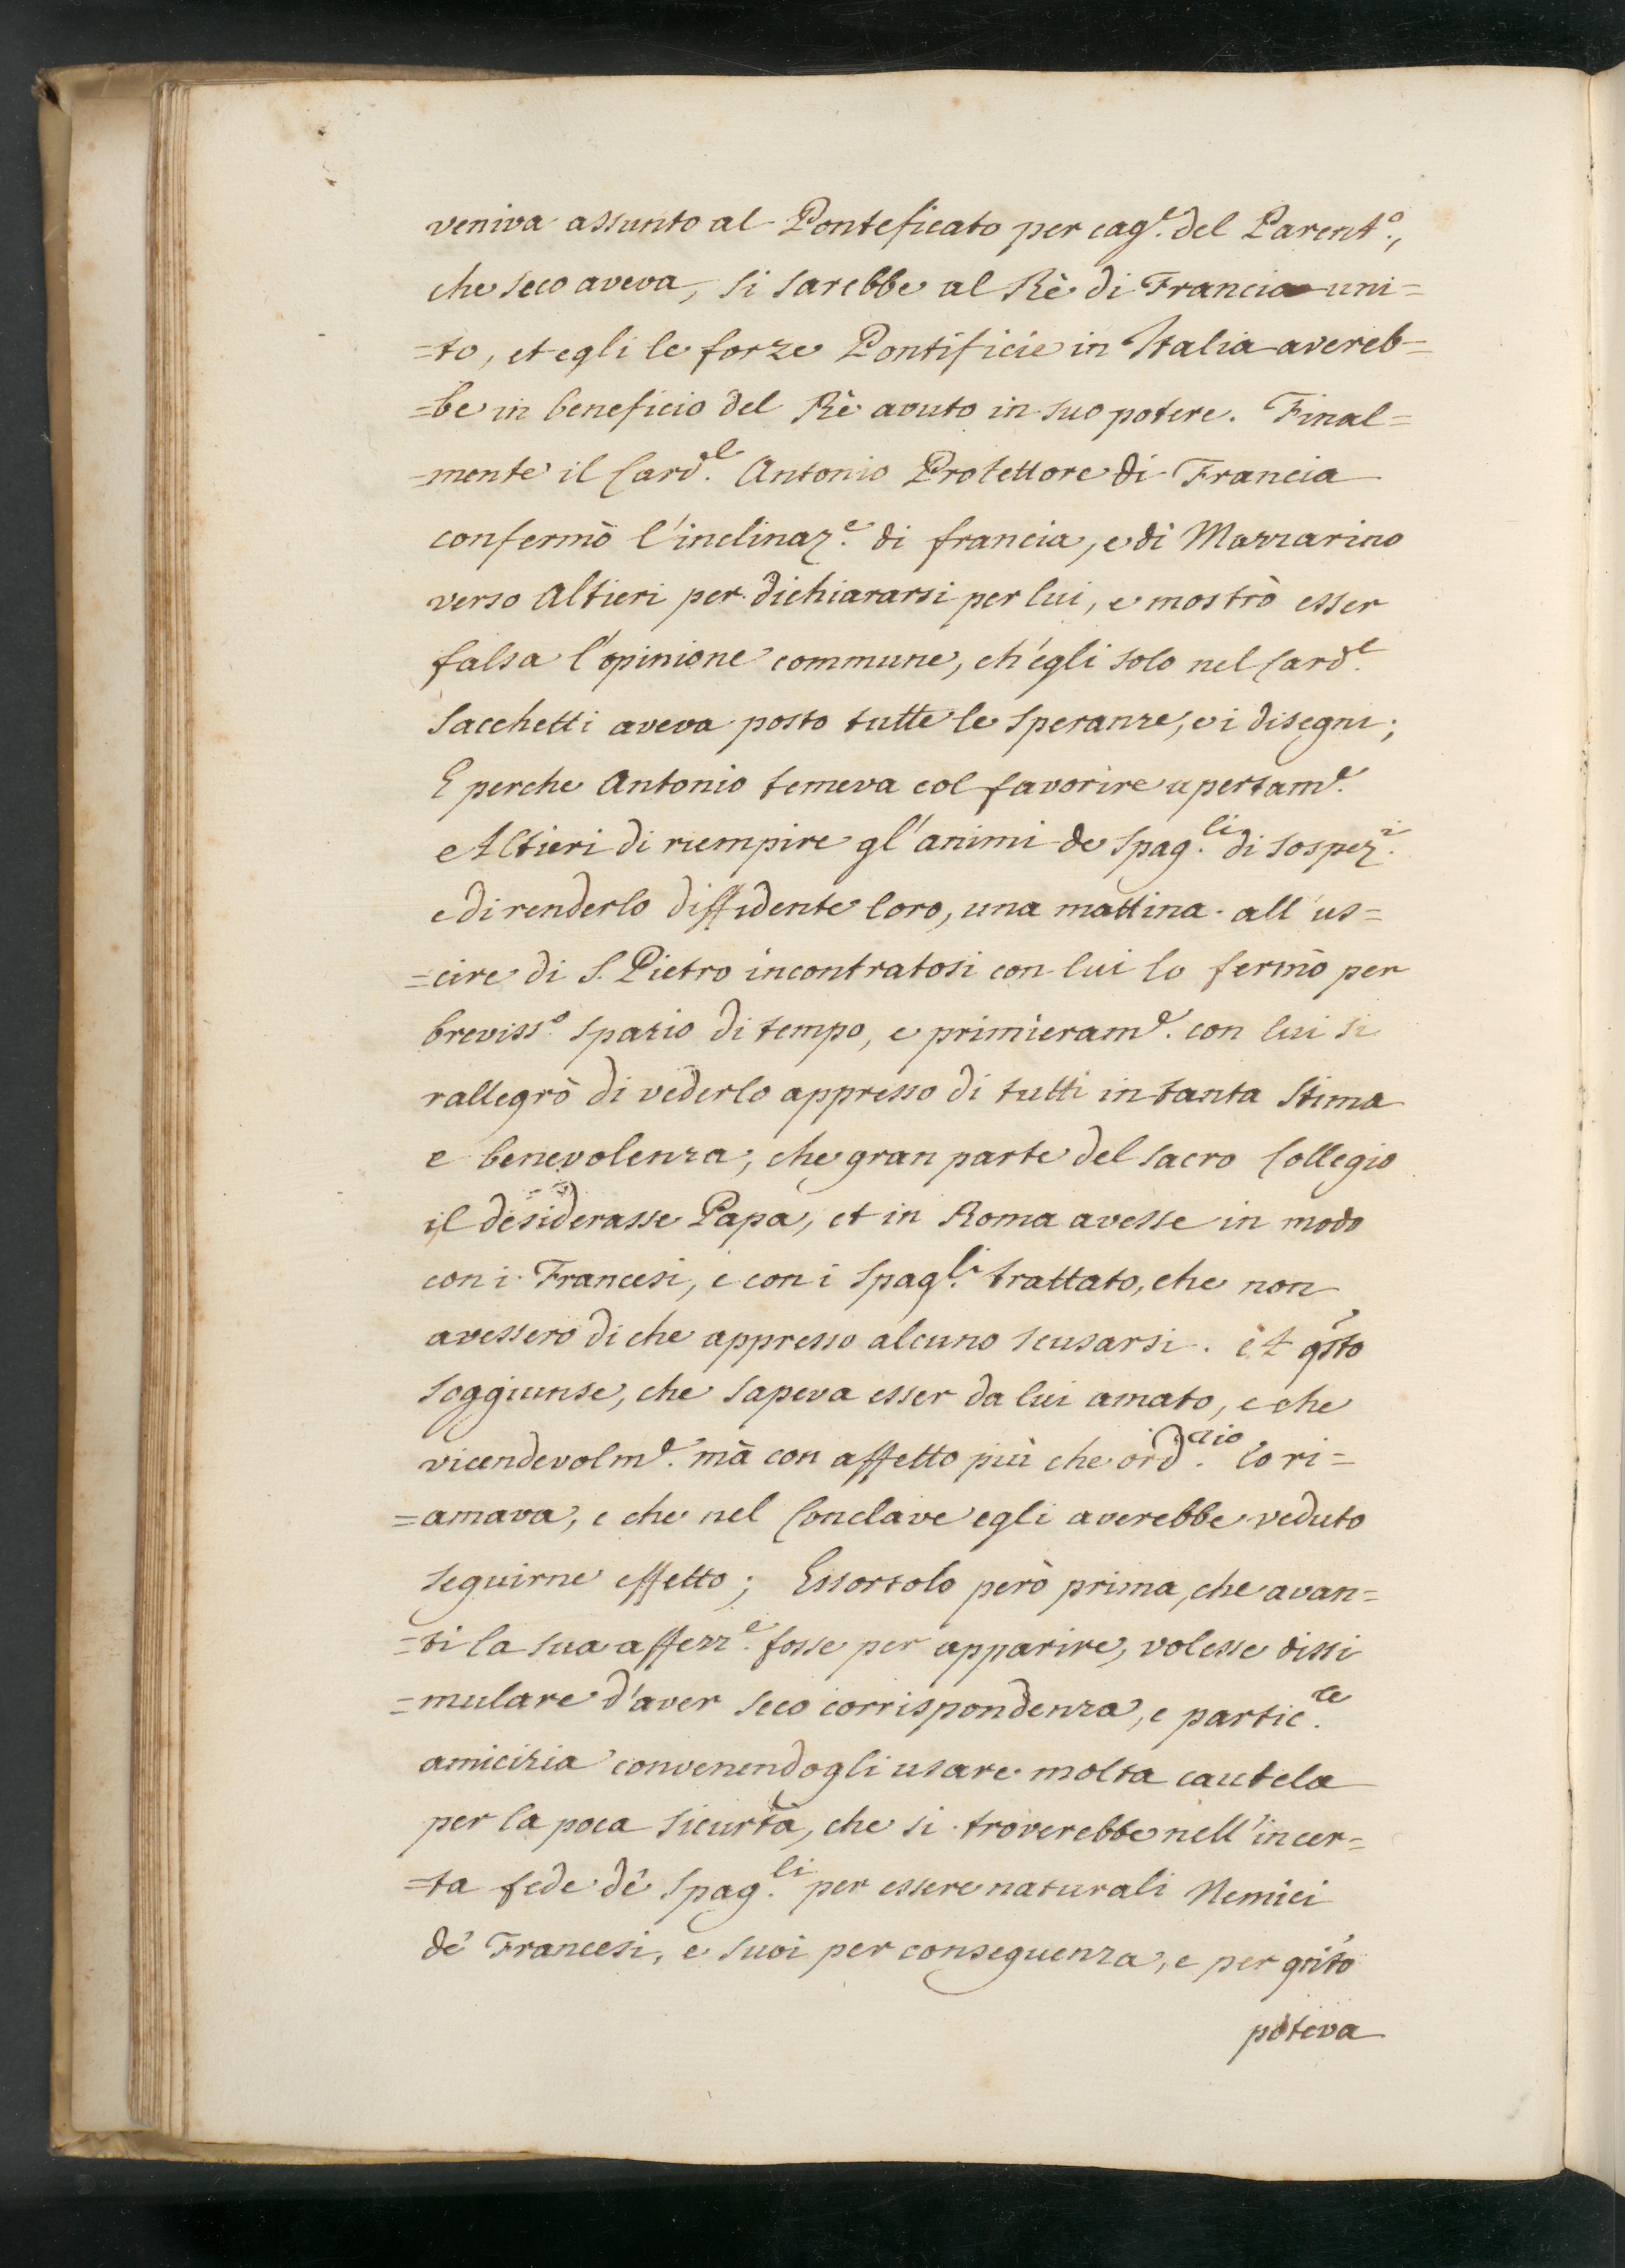 veniva assunto al Ponteficato per cag.^e del Parent.^o,
che seco aveva, si sarebbe al Rè di Francia uni=
=to, et egli le forze Pontificie in Italia avereb=
=be in beneficio del Rè avuto in suo potere. Final=
=mente il Card.^l Antonio Protettore di Francia
confermò l'inclinaz.^e di francia, e di Mazzarino
verso Altieri per dichiararsi per lui, e mostrò esser
falsa l'opinione commune, ch'egli solo nel Card.^l
Sacchetti aveva posto tutte le speranze, e i disegni;
E perche Antonio temeva col favorire apertam.^e
Altieri di riempire gl'animi de Spag.^li di sospez.^i
e di renderlo diffidente loro, una mattina all'us=
=cire di S. Pietro incontratosi con lui lo fermò per
breviss.^o spazio di tempo, e primieram.^e con lui si
rallegrò di vederlo appresso di tutti in tanta stima
e benevolenza, che gran parte del sacro Collegio
il desiderasse Papa, et in Roma avesse in modo
con i Francesi, e con i Spag.^li trattato, che non
avessero di che appresso alcuno scusarsi. Et qsto
soggiunse, che sapeva esser da lui amato, e che
vicendevolm.^e mà con affetto più che ord.^rio lo ri=
=amava, e che nel Conclave egli averebbe veduto
seguirne effetto; Essortolo però prima, che avan=
=ti la sua affezz.^e fosse per apparire, volesse dissi
=mulare d'aver seco corrispondenza, e partic.^re
amicizia convenendogli usare molta cautela
per la poca sicurtà, che si troverebbe nell'incer=
=ta fede dè Spag.^li per essere naturali Nemici
dè Francesi, e suoi per conseguenza, e per qnto
poteva